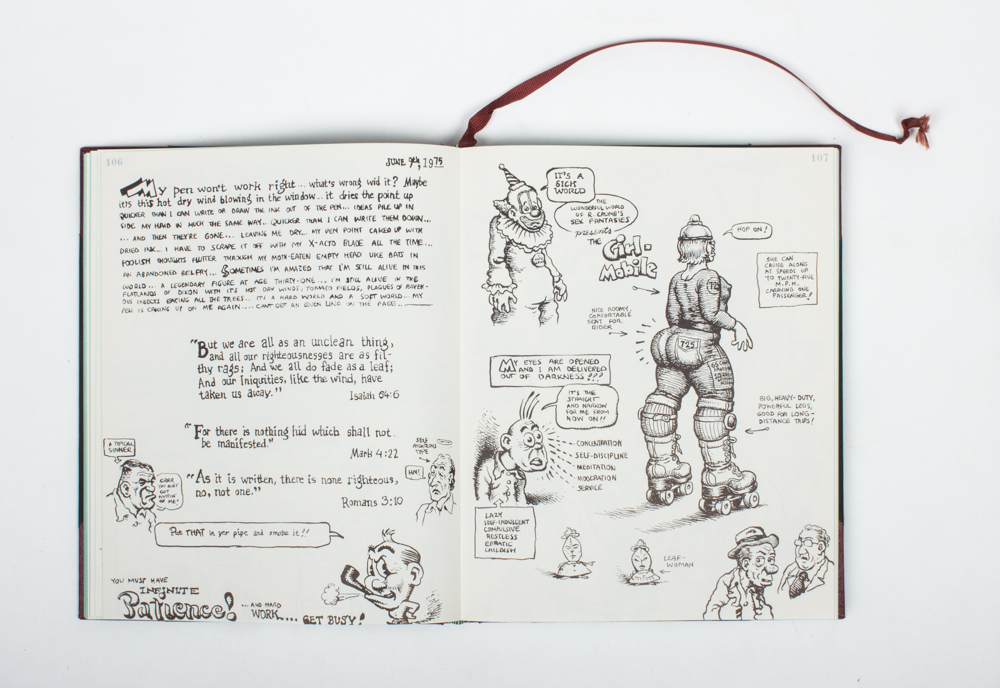 106
JUNE 9th, 1975
My pen won't work right... what's wrong wid it? Maybe
it's this hot dry wind blowing in the window... it dries the point up
QUICKER THAN I CAN WRITE OR DRAW THE INK OUT OF THE PEN... IDEAS PILE UP IN
SIDE MY HEAD IN MUCH THE SAME WAY... QUICKER THAN I CAN WRITE THEM DOWN...
... AND THEN THEY'RE GONE.... LEAVING ME DRY... MY PEN POINT CAKED UP WITH
DRIED INK... I HAVE TO SCRAPE IT OFF WITH MY X-ACTO BLADE ALL THE TIME...
FOOLISH THOUGHTS FLUTTER THROUGH MY MOTH-EATEN EMPTY HEAD LIKE BATS IN
AN ABANDONED BELFRY... SOMETIMES I'M AMAZED THAT I'M STILL ALIVE IN THIS
WORLD... A LEGENDARY FIGURE AT AGE THIRTY-ONE... I'M STILL ALIVE IN THE
FLATLANDS OF DIXON WITH IT'S HOT DRY WINDS, TOMATO FIELDS, PLAGUES OF RAVEN-
OUS INSECTS EATING ALL THE TREES... IT'S A HARD WORLD AND A SOFT WORLD... MY
PEN IS CAKING UP ON ME AGAIN.... CAN'T GET AN EVEN LINE ON THE PAGE...
"But we are all as an unclean thing,
and all our righteousnesses are as fil-
thy rags; And we all do fade as a leaf;
And our Iniquities, like the wind, have
taken us away."
Isaiah 64:6
"For there is nothing hid which shall not
be manifested."
Mark 4:22
A TYPICAL
SINNER
"As it is written, there is none righteous,
no, not one."
Romans 3:10
Put THAT in yer pipe and smoke it!!
YOU MUST HAVE
INFINITE
Patience!
...AND HARD
WORK....
GET BUSY!
107
IT'S A
SICK
WORLD
THE
WONDERFUL WORLD
OF R. CRUMB'S
SEX FANTASIES
presents
THE
Girl-
Mobile
HOP ON!
SHE CAN
CRUISE ALONG
AT SPEEDS UP
TO TWENTY-FIVE
M.P.H.
CARRYING ONE
PASSENGER!
NICE ROOMY
COMFORTABLE
SEAT FOR
RIDER
725
BIG, HEAVY-DUTY,
POWERFUL LEGS,
GOOD FOR LONG-
DISTANCE TRIPS!
MY EYES ARE OPENED
AND I AM DELIVERED
OUT OF DARKNESS!!!
IT'S THE
STRAIGHT
AND NARROW
FOR ME FROM
NOW ON!!
CONCENTRATION
SELF-DISCIPLINE
MEDITATION
MODERATION
SERVICE
LAZY
SELF-INDULGENT
COMPULSIVE
RESTLESS
ERRATIC
CHILDISH
LEAF-
WOMAN